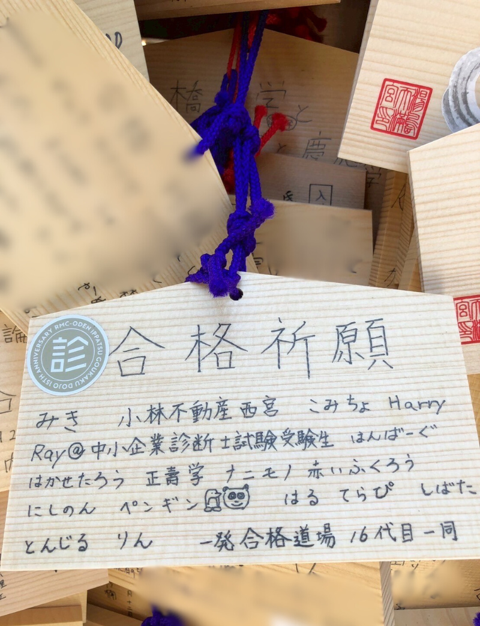 合格祈願
診
RMC-ODEN IPPATSU GOUKAKU DOJO 15TH ANNIVERSARY
みき 小林不動産西宮 こみちょ Harry
Ray@中小企業診断士試験受験生 はんばーぐ
はかせたろう 正青学 ナニモノ 赤いふくろう
にしのん ペンギン はる てらぴ しばた
とんじる りん 一発合格道場 16代目一同
橋 学
慶
入
論